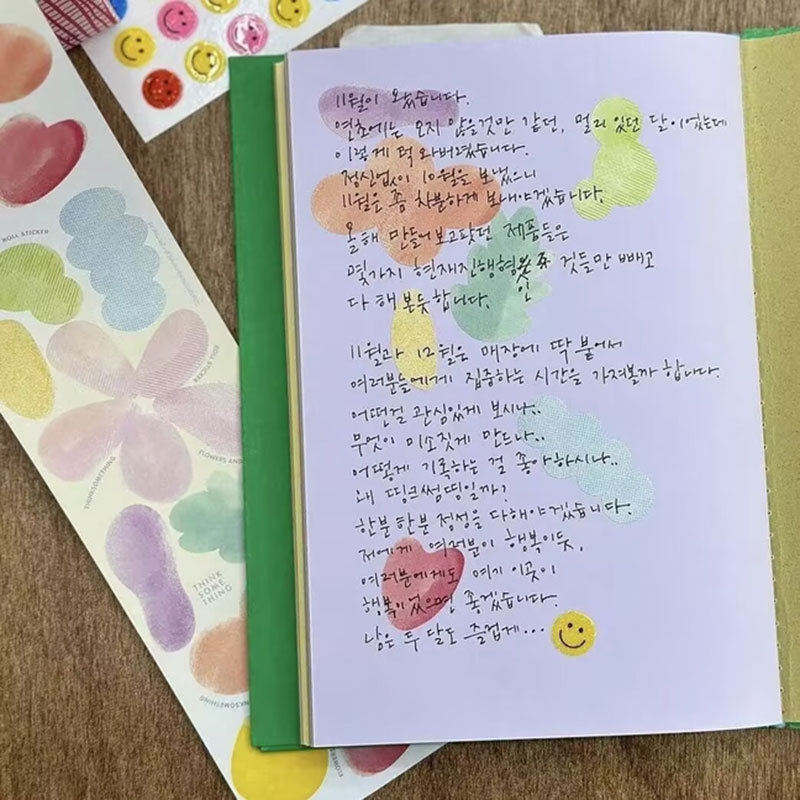 11월이 왔습니다.
연초에는 오지 않을것만 같던, 멀리 있던 달이었는데
이렇게 턱 와버렸습니다.
정신없이 10월을 보냈으니
11월은 좀 차분하게 보내야겠습니다.
올해 만들어보고팟던 제품들은
몇가지 현재진행형인 것들만 빼고
다 해본듯합니다.
11월과 12월은 매장에 딱 붙어서
여러분들에게 집중하는 시간을 가져볼까 합니다.
어떤걸 관심있게 보시나..
무엇이 미소짓게 만드나..
어떻게 기록하는 걸 좋아하시나..
왜 띵크썸띵일까?
한분한분 정성을 다해야겠습니다.
저에게 여러분이 행복이듯,
여러분에게도 여기 이곳이
행복이었으면 좋겠습니다.
남은 두 달도 즐겁게...
ROLL STICKER
ROLL STICKER
FLOWERS AND
THINKSOMETHING
THINK
SOME
THING
NKSOMETHING
FLOWERS